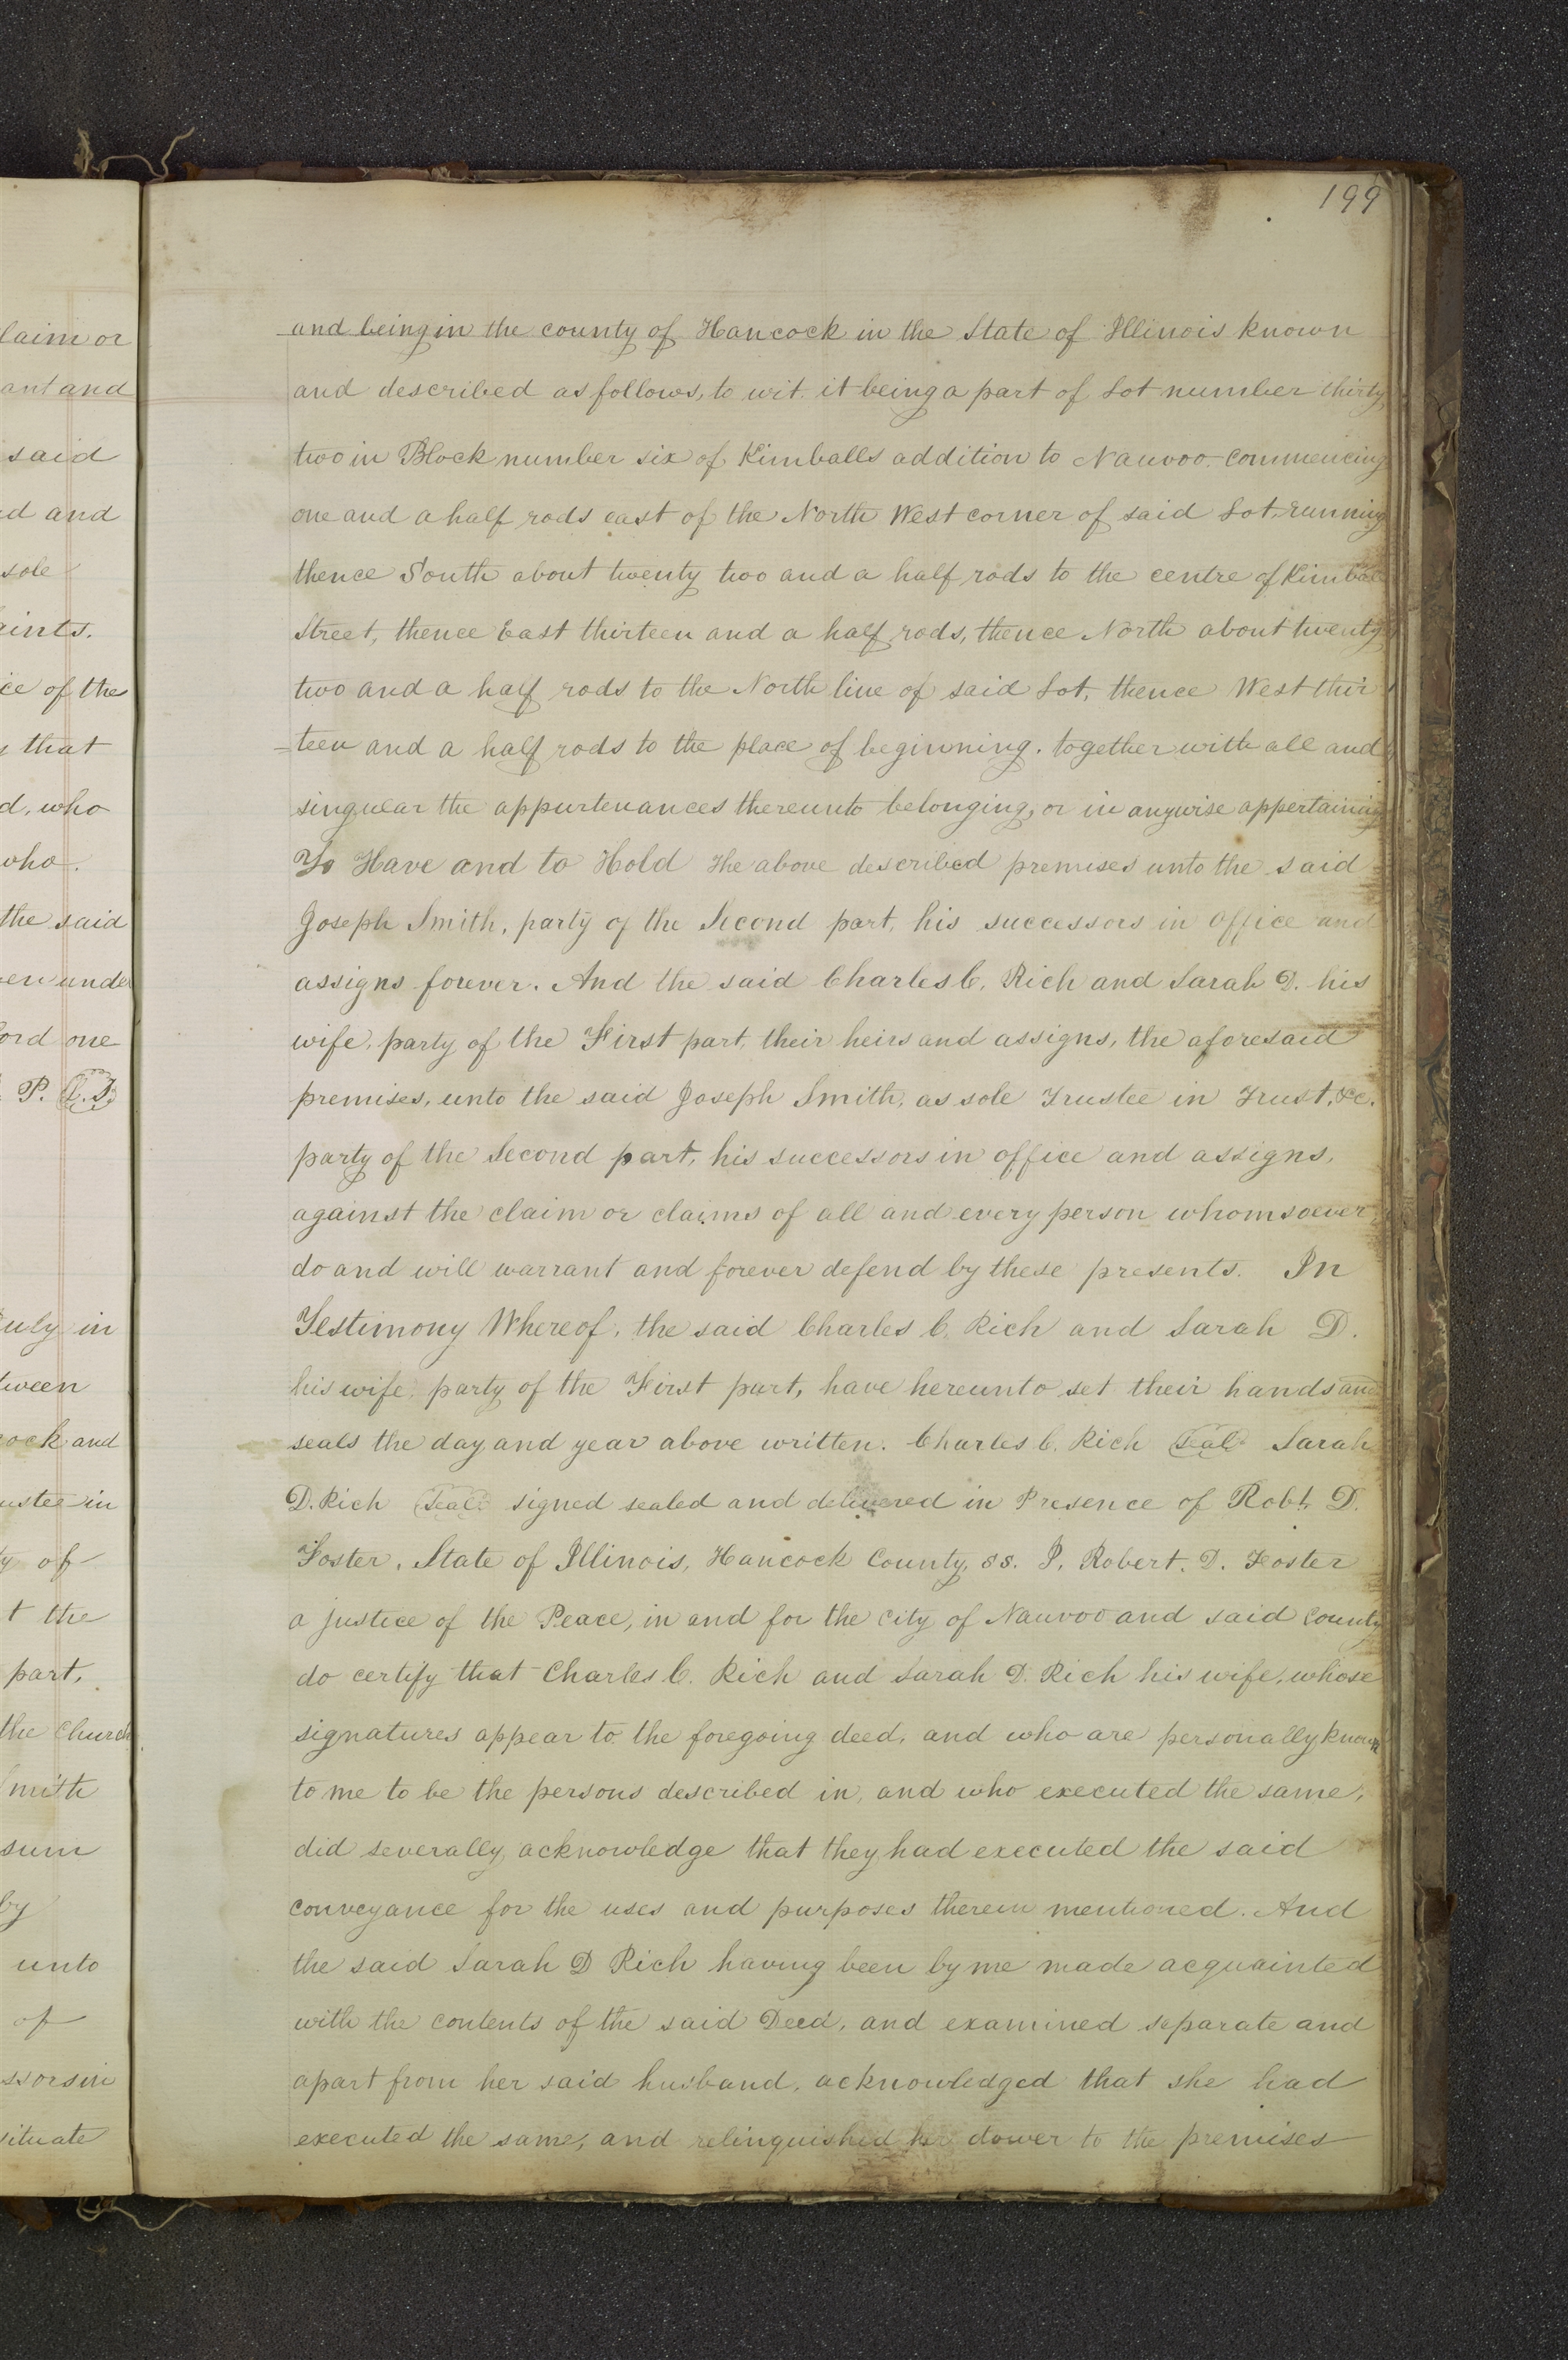 199
and being in the county of Hancock in the State of Illinois known
and described as follows, to wit. it being a part of Lot number thirty
two in Block number six of Kimballs addition to Nauvoo. Commencing
one and a half rods east of the North West corner of said Lot, running
thence South about twenty two and a half rods to the centre of Kimball
Street, thence East thirteen and a half rods, thence North about twenty
two and a half rods to the North line of said Lot, thence West thir
=teen and a half rods to the place of beginning. together with all and
singular the appurtenances thereunto belonging, or in anywise appertaining
To Have and to Hold the above described premises unto the said
Joseph Smith, party of the Second part, his successors in office and
assigns forever. And the said Charles C. Rich and Sarah D. his
wife, party of the First part, their heirs and assigns, the aforesaid
premises, unto the said Joseph Smith, as sole Trustee in Trust, &c.
party of the Second part, his successors in office and assigns,
against the claim or claims of all and every person whomsoever,
do and will warrant and forever defend by these presents. In
Testimony Whereof, the said Charles C. Rich and Sarah D.
his wife, party of the First part, have hereunto set their hands and
seals the day and year above written. Charles C. Rich Seal Sarah
D. Rich Seal signed sealed and delivered in Presence of Robt. D.
Foster, State of Illinois, Hancock County, ss. I, Robert. D. Foster
a justice of the Peace, in and for the City of Nauvoo and said County
do certify that Charles C. Rich and Sarah D. Rich his wife, whose
signatures appear to the foregoing deed, and who are personally known
to me to be the persons described in, and who executed the same,
did severally acknowledge that they had executed the said
conveyance for the uses and purposes therein mentioned. And
the said Sarah D Rich having been by me made acquainted
with the contents of the said Deed, and examined separate and
apart from her said husband, acknowledged that she had
executed the same, and relinquished her dower to the premises